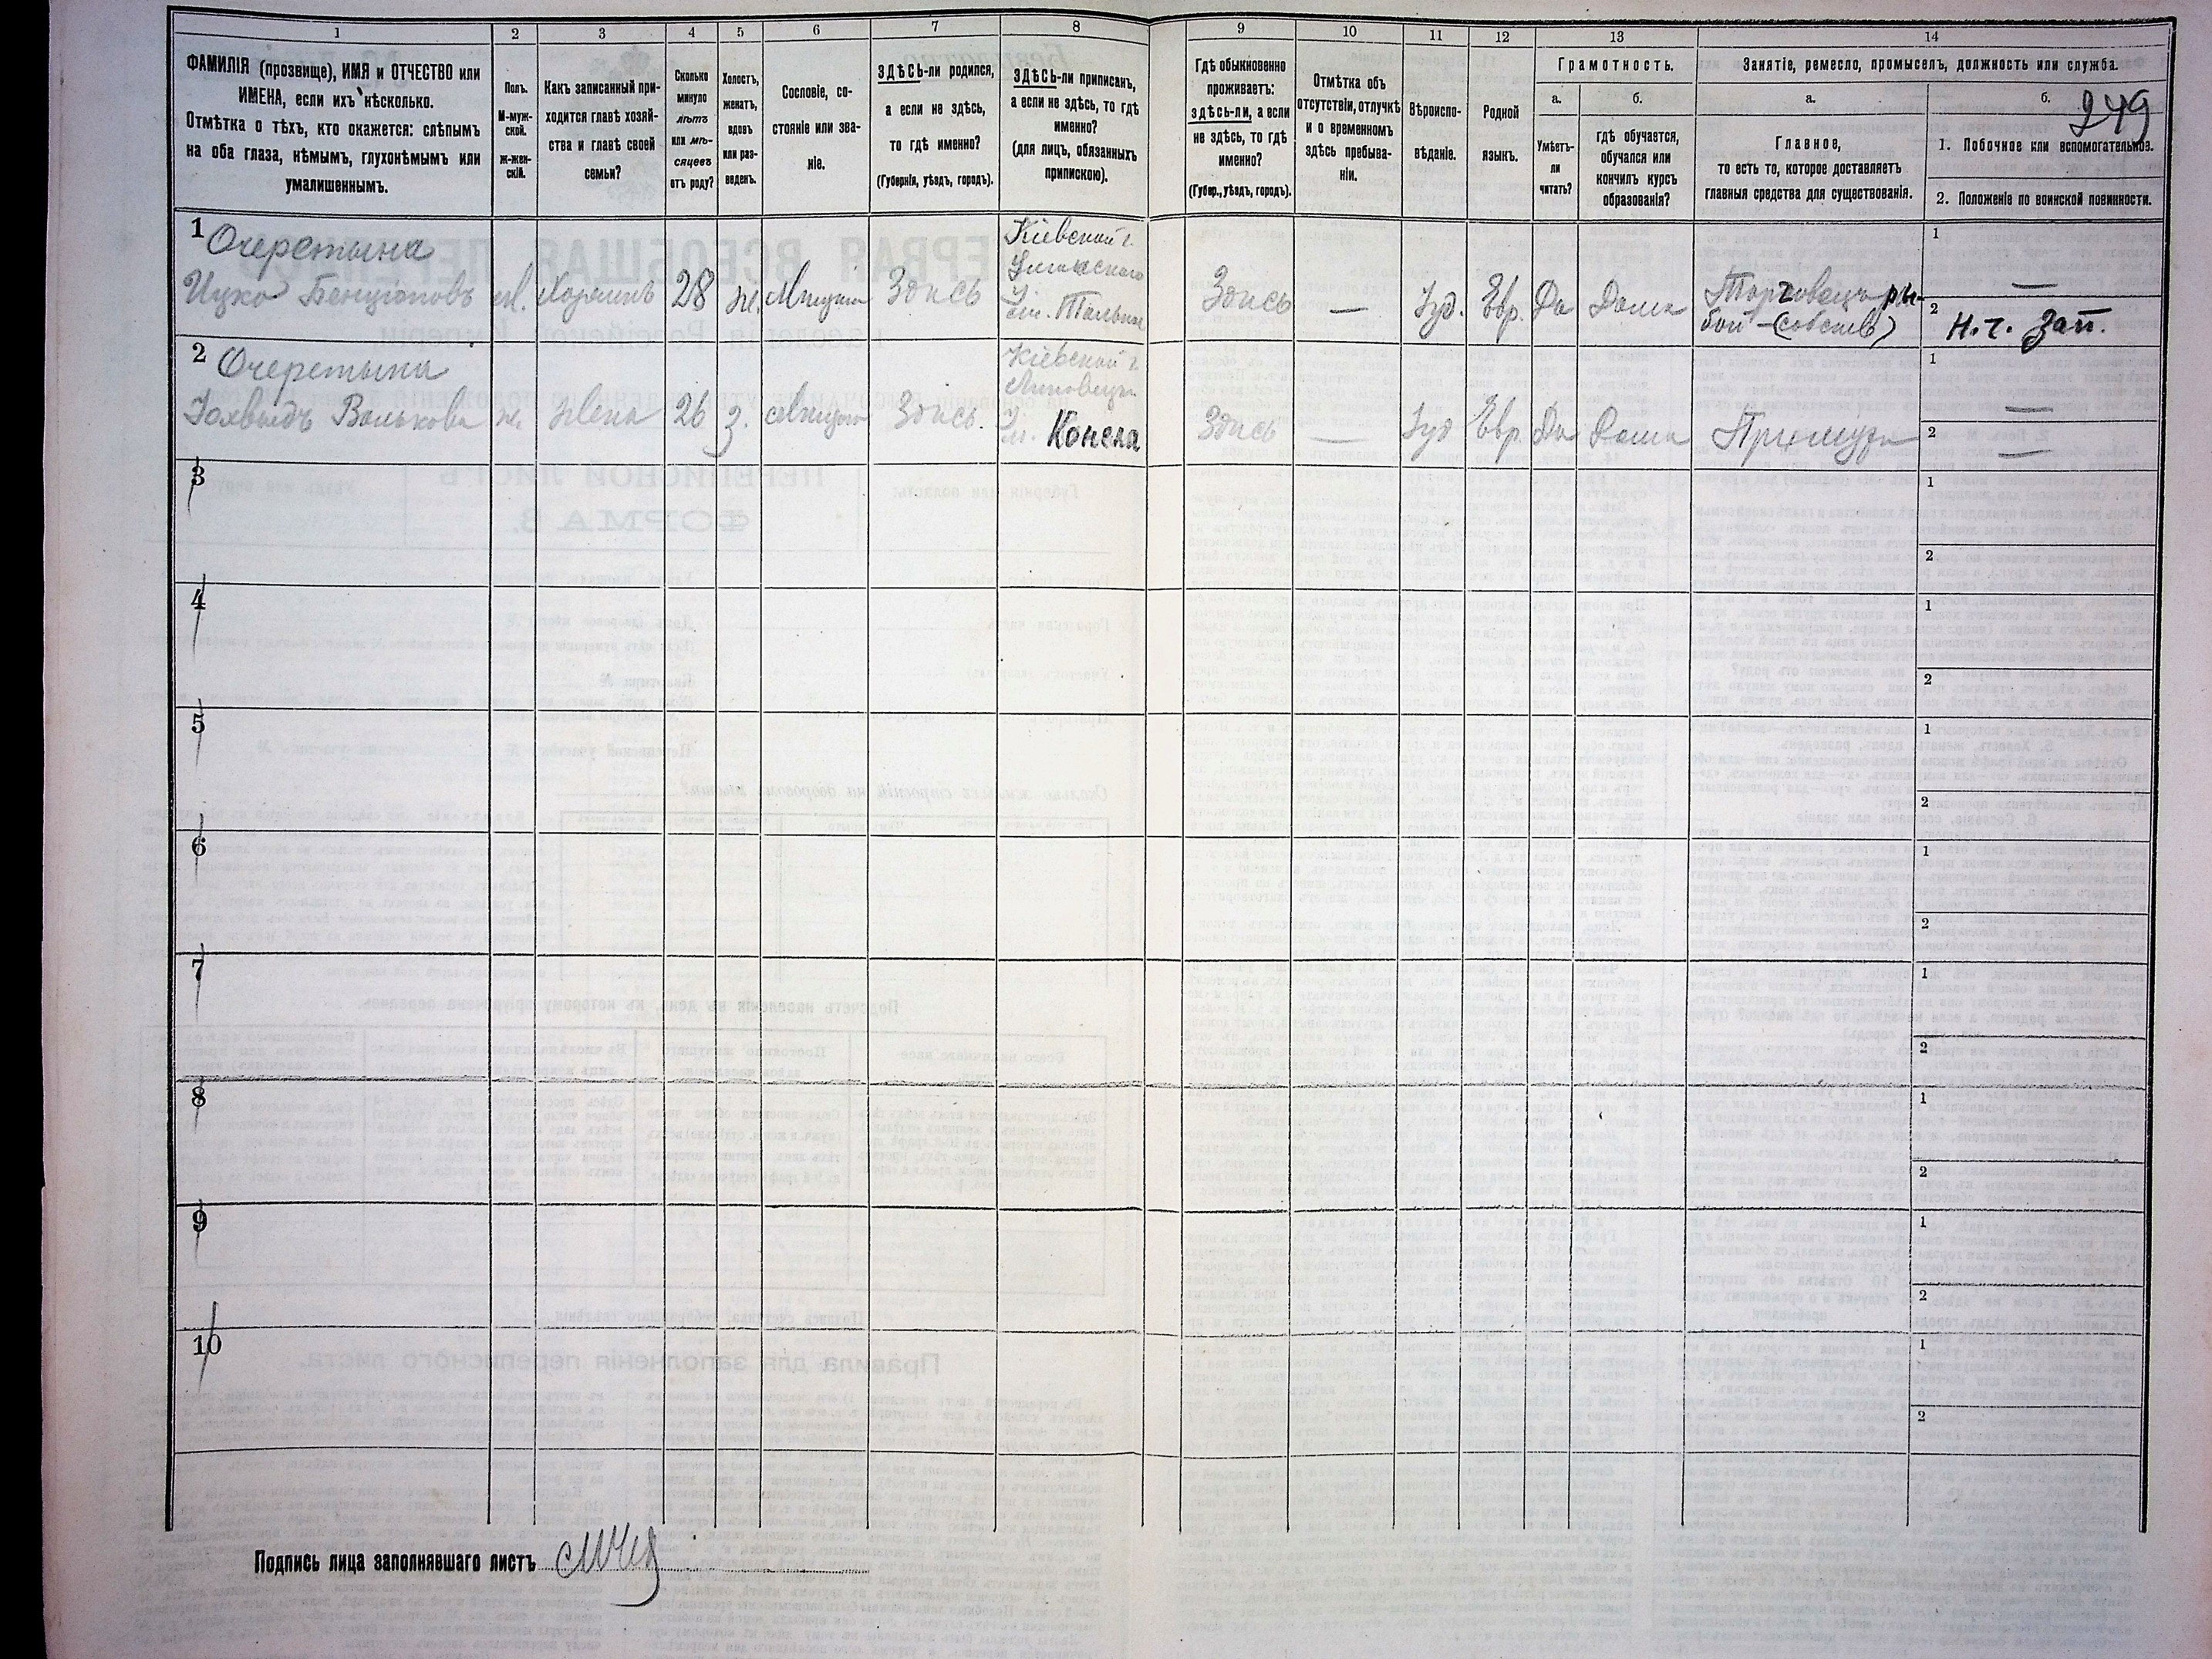 1 2 3 4 5 6 7 8 9 10 11 12 13 14
ФАМИЛІЯ (прозвище), ИМЯ и ОТЧЕСТВО или
ИМЕНА, если ихъ нѣсколько.
Отмѣтка о тѣхъ, кто окажется: слѣпымъ
на оба глаза, нѣмымъ, глухонѣмымъ или
умалишеннымъ.
Полъ.
М-муж-
ской.
Ж-жен-
скій.
Какъ записанный при-
ходится главѣ хозяй-
ства и главѣ своей
семьи?
Сколько
минуло
лѣтъ
или мѣ-
сяцевъ
отъ роду?
Холостъ,
женатъ,
вдовъ
или раз-
веденъ.
Сословіе, со-
стояніе или зва-
ніе.
ЗДѢСЬ-ли родился,
а если не здѣсь,
то гдѣ именно?
(Губернія, уѣздъ, городъ).
ЗДѢСЬ-ли приписанъ,
а если не здѣсь, то гдѣ
именно?
(для лицъ, обязанныхъ
припискою).
Гдѣ обыкновенно
проживаетъ:
здѣсь-ли, а если
не здѣсь, то гдѣ
именно?
(Губер., уѣздъ, городъ).
Отмѣтка объ
отсутствіи, отлучкѣ
и о временномъ
здѣсь пребыва-
ніи.
Вѣроиспо-
вѣданіе.
Родной
языкъ.
Грамотность.
а.
Умѣетъ-
ли
читать?
б.
гдѣ обучается,
обучался или
кончилъ курсъ
образованія?
Занятіе, ремесло, промыселъ, должность или служба.
а.
Главное,
то есть то, которое доставляетъ
главныя средства для существованія.
б.
249
1. Побочное или вспомогательное.
2. Положеніе по воинской повинности.
1 Очеретына
Ицко Бенціоновъ
М.
Хозяинъ
28
ж.
Мещан
Здесь
Кіевской г.
Уманскаго
у.
м. Тальна
Здесь
—
Іуд.
Евр.
Да
Дома
Торговецъ ры-
бой (собств)
1 —
2 Н. ч. зап.
2 Очеретына
Волькова
ж.
жена
26
з.
Мещан
Здесь.
Кіевской г.
Липовецк.
у.
м. Конела
Здесь
—
Іуд
Евр.
Да
Дома
При муже
1 —
2 —
3
1
2
4
1
2
5
1
2
6
1
2
7
1
2
8
1
2
9
1
2
10
1
2
Подпись лица заполнявшаго листъ